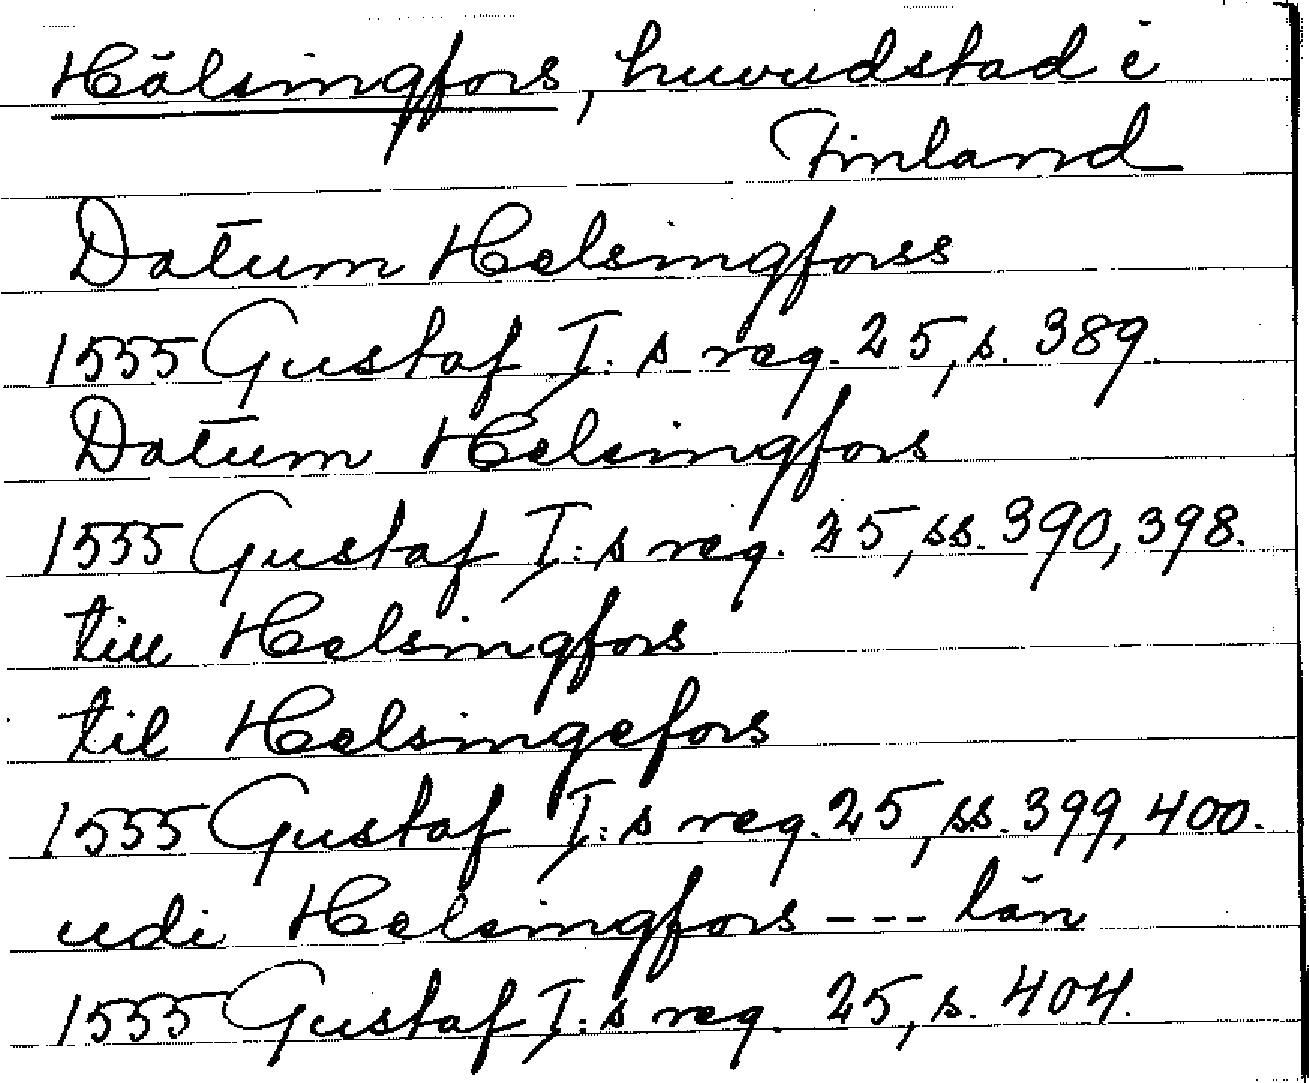 Hälsingfors, huvudstad i
Finland
Datum Helsingforss
1555 Gustaf I:s reg. 25, s. 389.
Datum Helsingfors
1555 Gustaf I:s reg. 25, ss. 390, 398.
till Helsingfors
til Helsingefors
1555 Gustaf I:s reg. 25, ss. 399, 400.
udi Helsingfors --- län
1555 Gustaf I:s reg. 25, s. 404.